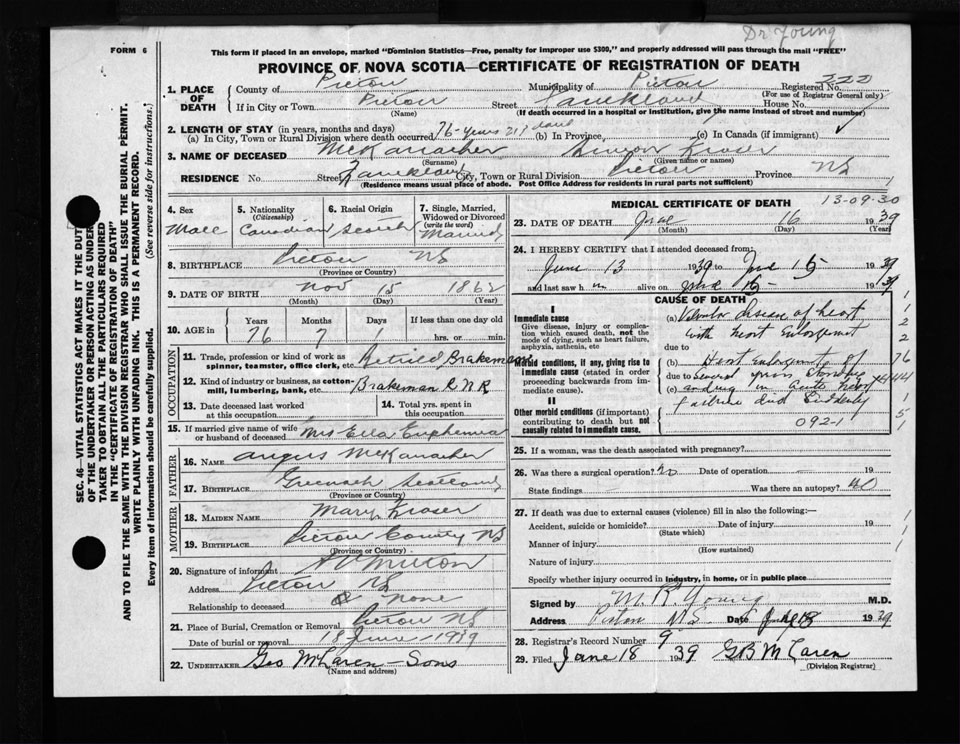 Dr Young
FORM 6
This form if placed in an envelope, marked "Dominion Statistics—Free, penalty for improper use $300," and properly addressed will pass through the mail "FREE"
PROVINCE OF NOVA SCOTIA—CERTIFICATE OF REGISTRATION OF DEATH
SEC. 46—VITAL STATISTICS ACT MAKES IT THE DUTY
OF THE UNDERTAKER OR PERSON ACTING AS UNDER-
TAKER TO OBTAIN ALL THE PARTICULARS REQUIRED
IN THE "CERTIFICATE OF REGISTRATION OF DEATH"
AND TO FILE THE SAME WITH THE DIVISION REGISTRAR WHO SHALL ISSUE THE BURIAL PERMIT.
WRITE PLAINLY WITH UNFADING INK. THIS IS A PERMANENT RECORD.
Every item of information should be carefully supplied. (See reverse side for instructions.)
1. PLACE OF DEATH
County of Pictou Municipality of Pictou Registered No. 222
(For use of Registrar General only)
If in City or Town Pictou Street House No.
(Name) (If death occurred in a hospital or institution, give the name instead of street and number)
2. LENGTH OF STAY (in years, months and days)
(a) In City, Town or Rural Division where death occurred 76-years (b) In Province (c) In Canada (if immigrant)
3. NAME OF DECEASED McKarracher Simon Fraser
(Surname) (Given name or names)
RESIDENCE No. Street City, Town or Rural Division Pictou Province NS
(Residence means usual place of abode. Post Office Address for residents in rural parts not sufficient)
4. Sex Male
5. Nationality (Citizenship) Canadian
6. Racial Origin Scotch
7. Single, Married, Widowed or Divorced (write the word) Married
8. BIRTHPLACE Pictou NS
(Province or Country)
9. DATE OF BIRTH Nov 15 1862
(Month) (Day) (Year)
10. AGE in Years Months Days If less than one day old
76 7 1 hrs. or min.
OCCUPATION
11. Trade, profession or kind of work as spinner, teamster, office clerk, etc. Retired Brakeman
12. Kind of industry or business, as cotton-mill, lumbering, bank, etc. Brakeman
13. Date deceased last worked at this occupation
14. Total yrs. spent in this occupation
15. If married give name of wife or husband of deceased Mrs Ella Euphemia
FATHER
16. NAME Angus McKarracher
17. BIRTHPLACE Greenock Scotland
(Province or Country)
MOTHER
18. MAIDEN NAME Mary Fraser
19. BIRTHPLACE Pictou County NS
(Province or Country)
20. Signature of informant
Address Pictou NS
Relationship to deceased None
21. Place of Burial, Cremation or Removal Pictou NS
Date of burial or removal 18 June 1939
22. UNDERTAKER Geo McLaren - Sons
(Name and address)
MEDICAL CERTIFICATE OF DEATH 13-09-30
23. DATE OF DEATH June 16 1939
(Month) (Day) (Year)
24. I HEREBY CERTIFY that I attended deceased from:
June 13 1939 to June 15 1939
and last saw him alive on June 15 1939
CAUSE OF DEATH
I
Immediate cause
Give disease, injury or complication which caused death, not the mode of dying, such as heart failure, asphyxia, asthenia, etc
(a) Valvular disease of heart
with heart Enlargement
due to
Morbid conditions, if any, giving rise to immediate cause (stated in order proceeding backwards from immediate cause).
(b) Heart enlargement of
due to several years
(c) ending in acute heart
II
Other morbid conditions (if important) contributing to death but not causally related to immediate cause.
failure died suddenly
092-1
25. If a woman, was the death associated with pregnancy?
26. Was there a surgical operation? no Date of operation 19
State findings Was there an autopsy? no
27. If death was due to external causes (violence) fill in also the following:—
Accident, suicide or homicide? Date of injury 19
(State which)
Manner of injury
(How sustained)
Nature of injury
Specify whether injury occurred in industry, in home, or in public place
Signed by M. R. Young M.D.
Address Pictou N.S. Date June 18 1939
28. Registrar's Record Number 9
29. Filed June 18 1939 GB McLaren
(Division Registrar)